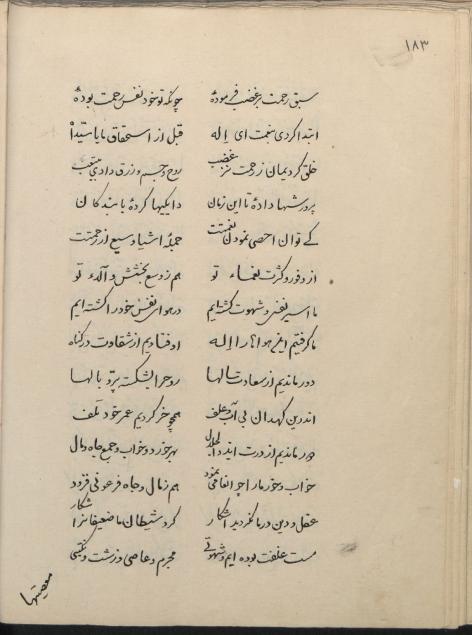 ۱۸۳
سبق رحمت بر غضب فرمودهٔ چونکه تو خود نفس رحمت بودهٔ
ابتدا کردی بنعمت ای اله قبل از استحقاق ما یا سیداه
خلق کردیمان ز رحمت نز غضب روح و جسم و رزق دادی بی تعب
پرورشها دادهٔ تا این زمان دایگیها کردهٔ با بندکان
کے توان احصی نمودن نعمتت جملهٔ اشیا وسیع از رحمتت
از وفور و کثرت نعماء تو هم ز وسع بخشش و آلاء تو
ما اسیر نفس و شهوت کشته‌ایم در هوای نفس خود را کشته ایم
ما کرفتیم این هواها را اله اوفتادیم از شقاوت در کناه
دور ماندیم از سعادت سالها روح را بشکسته پر و بالها
اندرین کهدان بی آب و علف همچو خر کردیم عمر خود تلف
دور ماندیم از درت ای ذوالجلال بهر خورد و خواب و جمع جاه و مال
خواب و خور ما را چو انعامی نمود هم ز مال و جاه فرعونی فزود
عقل و دین در ما نکردید آشکار کرد شیطان ما ضعیفانرا شکار
مست غفلت بوده ایم و شهوتی مجرم و عاصی و زشت و
معصیتها